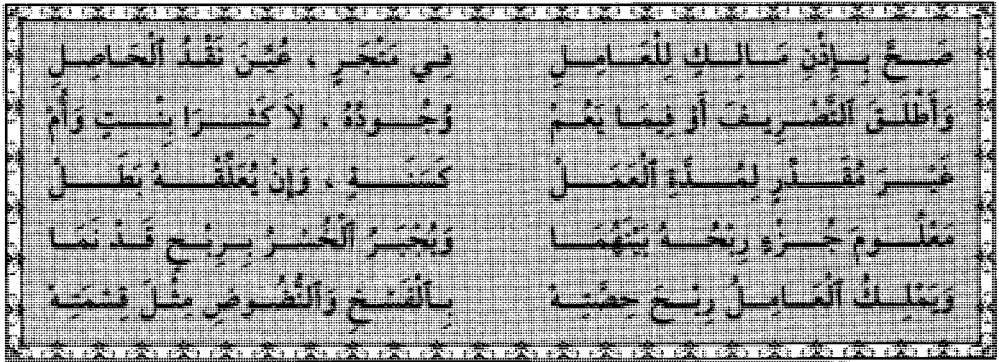 صَحَّ بِإِذْنِ مَالِكٍ لِلْعَامِلِ فِي مَتْجَرٍ ، عُيِّنَ نَقْدُ ٱلْحَاصِلِ
وَأَطْلَقَ ٱلتَّصْرِيفَ أَوْ فِيمَا يَعُمْ وُجُودُهُ ، لاَ كَشِرَا بِنْتٍ وَأُمْ
غَيْرَ مُقَدِّرٍ لِمُدَّةِ ٱلْعَمَلْ كَسَنَةٍ ، وَإِنْ يُعَلِّقْهُ بَطَلْ
مَعْلُومَ جُزْءِ رِبْحُهُ بَيْنَهُمَا وَيُجْبَرُ ٱلْخُسْرُ بِرِبْحٍ قَدْ نَمَا
وَيَمْلِكُ ٱلْعَامِلُ رِبْحَ حِصَّتِهْ بِٱلْفَسْخِ وَٱلنُّضُوضِ مِثْلَ قِسْمَتِهْ